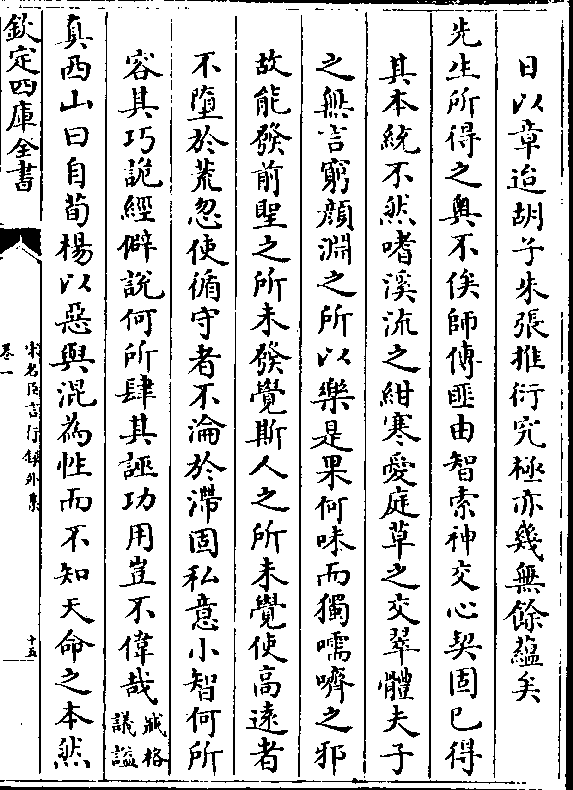 日以章迨胡子朱張推衍究極亦幾無餘蘊矣
先生所得之奥不俟師傅匪由智索神交心契固已得
其本統不然嗜溪流之紺寒愛庭草之交翠體夫子
之無言窮顔淵之所以樂是果何味而獨嚅嚌之邪
故能發前聖之所未發覺斯人之所未覺使高遠者
不墮於荒忽使循守者不淪於滯固私意小智何所
容其巧詭經僻說何所肆其誣功用豈不偉哉臧格議諡
真西山曰自荀楊以惡與混為性而不知天命之本然
欽定四庫全書
宋名臣言行錄外集
卷一
十五